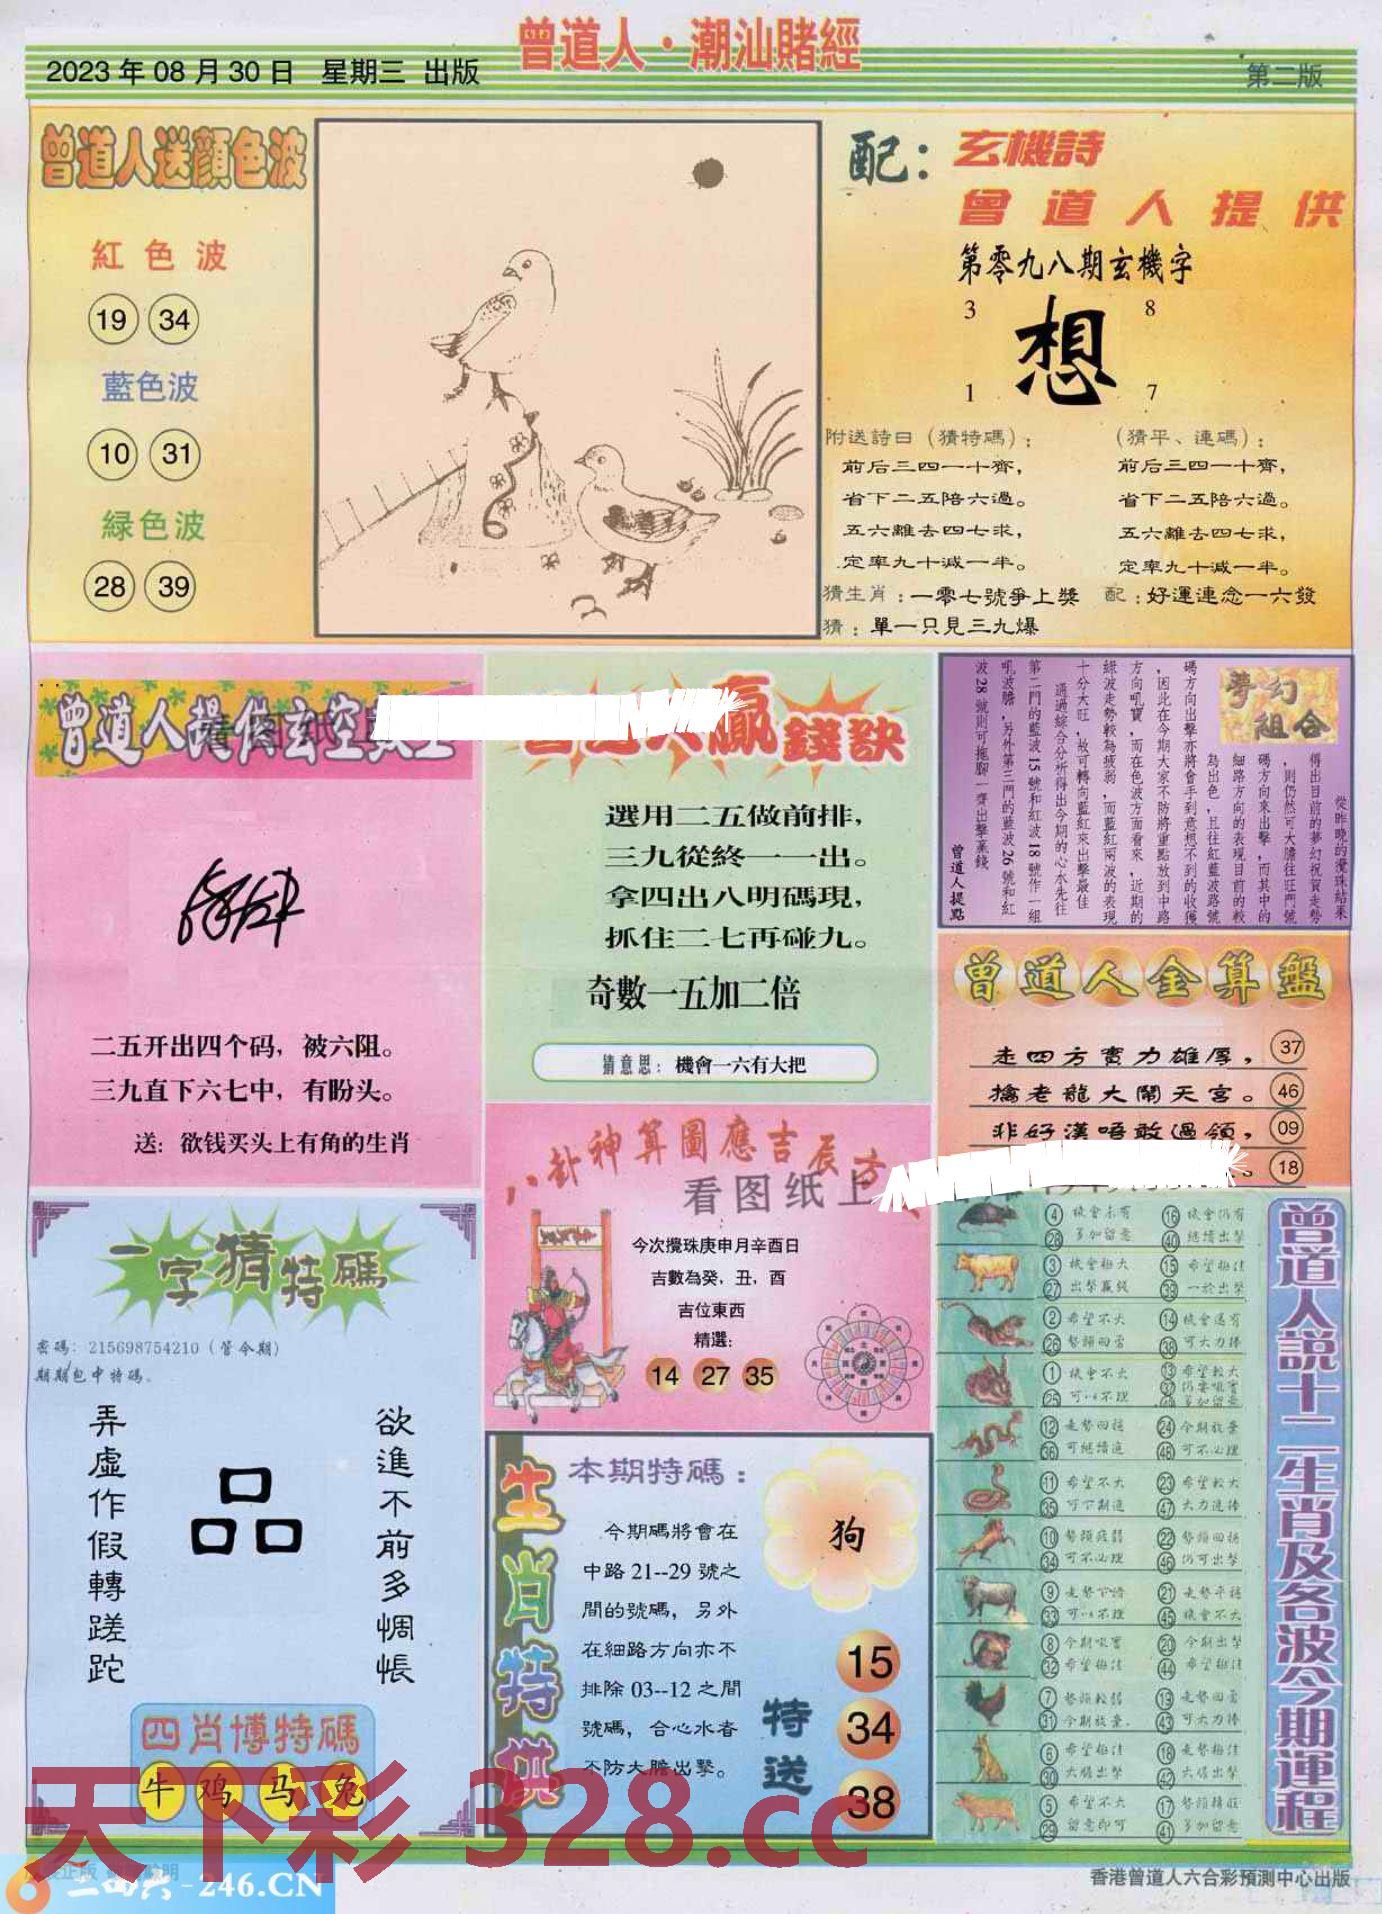 曾道人·潮汕賭經
2023年08月30日 星期三 出版
第二版
曾道人送顏色波
紅色波
19 34
藍色波
10 31
緑色波
28 39
配：玄機詩
曾道人提供
第零九八期玄機字
3 8
想
1 7
附送詩日（猜特碼）：
前后三四一十齊，
省下二五陪六過。
五六離去四七求，
定率九十減一半。
（猜平、連碼）：
前后三四一十齊，
省下二五陪六過。
五六離去四七求，
定率九十減一半。
猜生肖：一零七號爭上獎 配：好運連念一六發
猜：單一只見三九爆
曾道人提供玄空
二五开出四个码，被六阻。
三九直下六七中，有盼头。
送：欲钱买头上有角的生肖
贏錢訣
選用二五做前排，
三九從終一一出。
拿四出八明碼現，
抓住二七再碰九。
奇數一五加二倍
猜意思：機會一六有大把
夢幻組合
從昨晚的攪珠結果
得出目前的夢幻祝賀走勢
，則仍然可大膽往旺門號
碼方向來出擊，而其中的
細路方向的表現目前的較
為出色，且往紅藍波路號
碼方向出擊亦將會手到意想不到的收獲
，因此在今期大家不防將重點放到中路
方向吼寶，而在色波方面看來，近期的
綠波走勢較為疲弱，而藍紅兩波的表現
十分大旺，故可轉向藍紅來出擊最佳
通過綜合分析得出今期的心水先往
第二門的藍波15號和紅波18號作一組
吼波膽，另外第三門的藍波26號和紅
波28號則可拖腳一齊出擊贏錢
曾道人提點
曾道人金算盤
走四方實力雄厚， 37
擒老龍大鬧天宮。 46
非好漢唔敢過領， 09
18
八卦神算圖應吉辰方
看图纸上
今次攪珠庚申月辛酉日
吉數為癸，丑，酉
吉位東西
精選：
14 27 35
一字猜特碼
密碼：215698754210（管今期）
期期包中特碼。
欲進不前多惆悵
品
弄虛作假轉蹉跎
四肖博特碼
牛 鸡 马 兔
生肖特供
本期特碼：
今期碼將會在
中路21--29號之
間的號碼，另外
在細路方向亦不
排除03--12之間
號碼，合心水者
不防大膽出擊。
狗
特送
15
34
38
曾道人説十二生肖及各波今期運程
4 機會未有 16 機會仍有
28 多加留意 40 繼續出擊
3 機會極大 15 希望極佳
27 出擊贏錢 39 一於出擊
2 希望不大 14 機會還有
26 勢頭回落 38 可大力捧
1 機會不大 13 希望較大
25 可以不理 37
12 走勢回穩 24 今期放棄
36 可繼續追 48 可不必理
11 希望不大 23 希望較大
35 可下期追 47 大力追捧
10 勢頭疲弱 22 勢頭回穩
34 可不必理 46 仍可出擊
9 21 走勢平穩
33 可以不理 45 機會不大
8 今期吼實 20 今期出擊
32 希望極佳 44 希望極佳
7 勢頭較弱 19
31 今期放棄 43 可大力捧
6 希望極佳 18 走勢極佳
30 大膽出擊 42 大膽出擊
5 希望不大 17
29 留意即可 41 多加留意
天下彩 328.cc
二四六-246.CN
香港曾道人六合彩預測中心出版